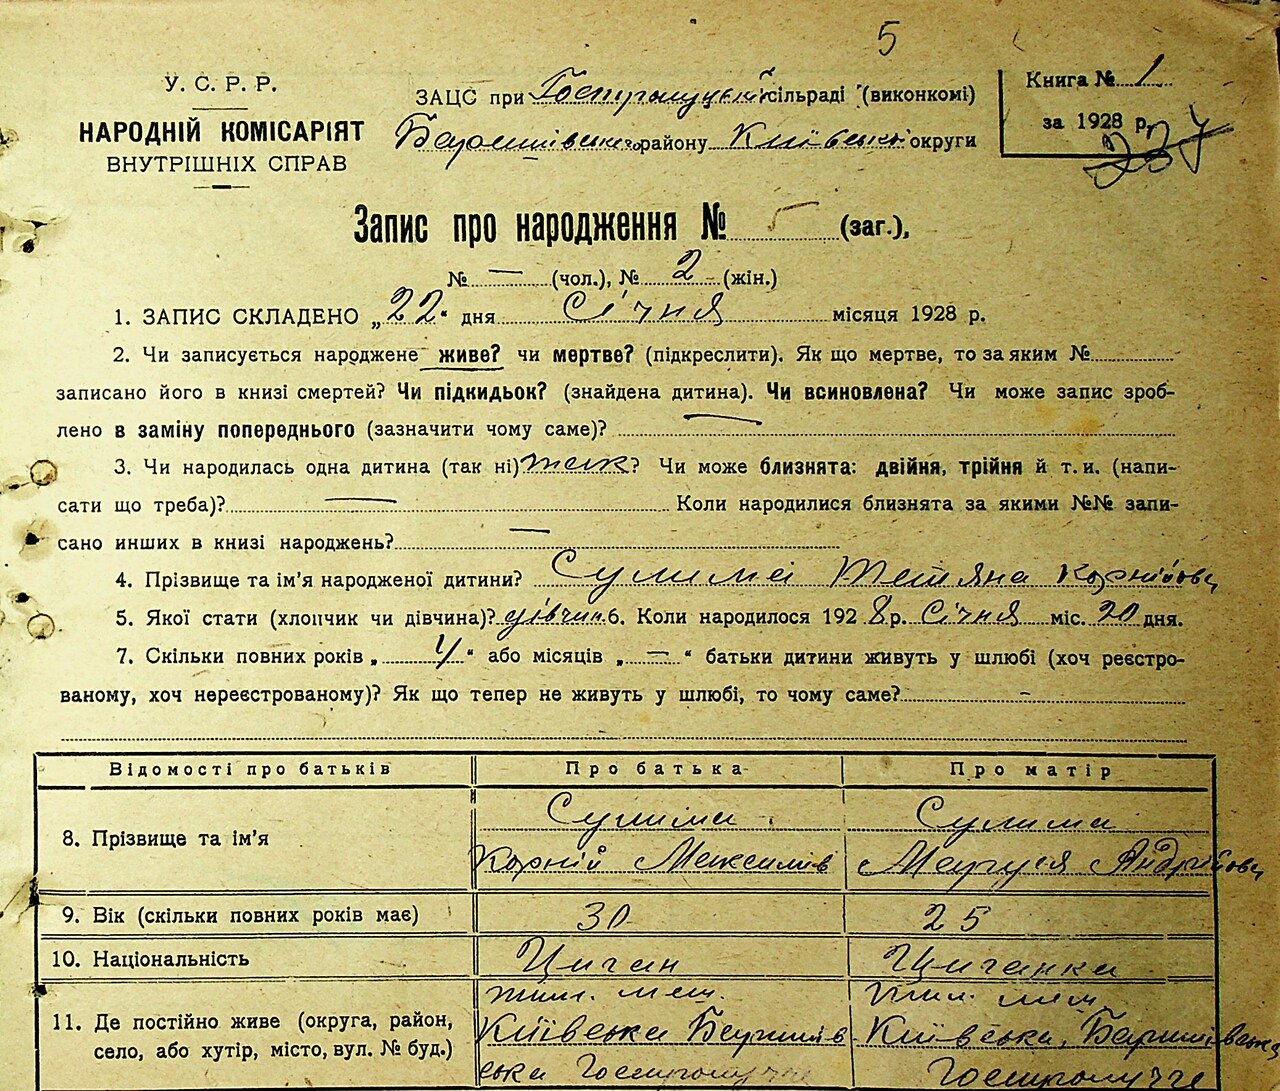 5
У. С. Р. Р.
НАРОДНІЙ КОМІСАРІЯТ
ВНУТРІШНІХ СПРАВ
ЗАЦС при сільраді (виконкомі)
району округи
Книга № 1
за 1928 р.
237
Запис про народження № 5 (заг.),
№ — (чол.), № 2 (жін.)
1. ЗАПИС СКЛАДЕНО „22“ дня Січня місяця 1928 р.
2. Чи записується народжене живе? чи мертве? (підкреслити). Як що мертве, то за яким №
записано його в книзі смертей? Чи підкидьок? (знайдена дитина). Чи всиновлена? Чи може запис зроб-
лено в заміну попереднього (зазначити чому саме)? —
3. Чи народилась одна дитина (так ні) так? Чи може близнята: двійня, трійня й т. и. (напи-
сати що треба)? — Коли народилися близнята за якими №№ запи-
сано инших в книзі народжень? —
4. Прізвище та ім'я народженої дитини? Сулима Тетяна Корніїовн
5. Якої стати (хлопчик чи дівчина)? дівчин 6. Коли народилося 1928 р. Січня міс. 20 дня.
7. Скільки повних років „ 4 “ або місяців „ — “ батьки дитини живуть у шлюбі (хоч реєстро-
ваному, хоч нереєстрованому)? Як що тепер не живуть у шлюбі, то чому саме? -
Відомості про батьків Про батька Про матір
8. Прізвище та ім'я Сулима Корній Максимів Сулима Маруся Андріїовн
9. Вік (скільки повних років має) 30 25
10. Національність Циган Циганка
11. Де постійно живе (округа, район,
село, або хутір, місто, вул. № буд.)
Київська Київська